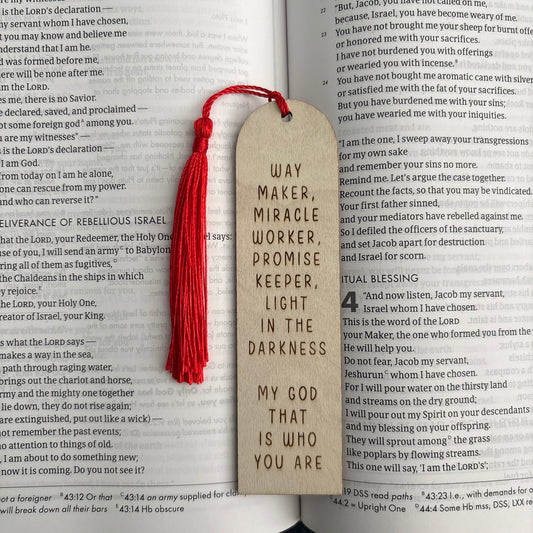 is the LORD's declaration —
my servant whom I have chosen,
at you may know and believe me
understand that I am he.
d was formed before me,
ere will be none after me.
am the LORD.
es me, there is no Savior.
e declared, saved, and proclaimed —
ot some foreign god^A among you.
are my witnesses" —
is the LORD's declaration —
I am God.
from today on I am he alone,
one can rescue from my power.
and who can reverse it?"
ELIVERANCE OF REBELLIOUS ISRAEL
what the LORD, your Redeemer, the Holy
says:
use of you, I will send an army^C to Babylon
ring all of them as fugitives,^D
the Chaldeans in the ships in which
y rejoice.^E
the LORD, your Holy One,
reator of Israel, your King.
what the LORD says —
makes a way in the sea,
path through raging water,
brings out the chariot and horse,
army and the mighty one together
lie down, they do not rise again;
are extinguished, put out like a wick) —
not remember the past events;
no attention to things of old.
I am about to do something new;
now it is coming. Do you not see it?
not a foreigner ^B43:12 Or that ^C43:14 an army supplied for
will break down all their bars ^E43:14 Hb obscure
WAY
MAKER,
MIRACLE
WORKER,
PROMISE
KEEPER,
LIGHT
IN THE
DARKNESS
MY GOD
THAT
IS WHO
YOU ARE
22 "But, Jacob, you have not called on me,
because, Israel, you have become weary of me.
23 You have not brought me your sheep for burnt offe
or honored me with your sacrifices.
I have not burdened you with offerings
or wearied you with incense.^B
24 You have not bought me aromatic cane with silver
or satisfied me with the fat of your sacrifices.
But you have burdened me with your sins;
you have wearied me with your iniquities.
"I am the one, I sweep away your transgressions
for my own sake
and remember your sins no more.
Remind me. Let's argue the case together.
Recount the facts, so that you may be vindicated.
Your first father sinned,
and your mediators have rebelled against me.
So I defiled the officers of the sanctuary,
and set Jacob apart for destruction
and Israel for scorn.
RITUAL BLESSING
4 "And now listen, Jacob my servant,
Israel whom I have chosen.
This is the word of the LORD
your Maker, the one who formed you from the
He will help you.
Do not fear, Jacob my servant,
Jeshurun^C whom I have chosen.
For I will pour water on the thirsty land
and streams on the dry ground;
I will pour out my Spirit on your descendants
and my blessing on your offspring.
They will sprout among^D the grass
like poplars by flowing streams.
This one will say, 'I am the LORD's';
19 DSS read paths ^B43:23 I.e., with demands for
44:2 = Upright One ^D44:4 Some Hb mss, DSS, LXX